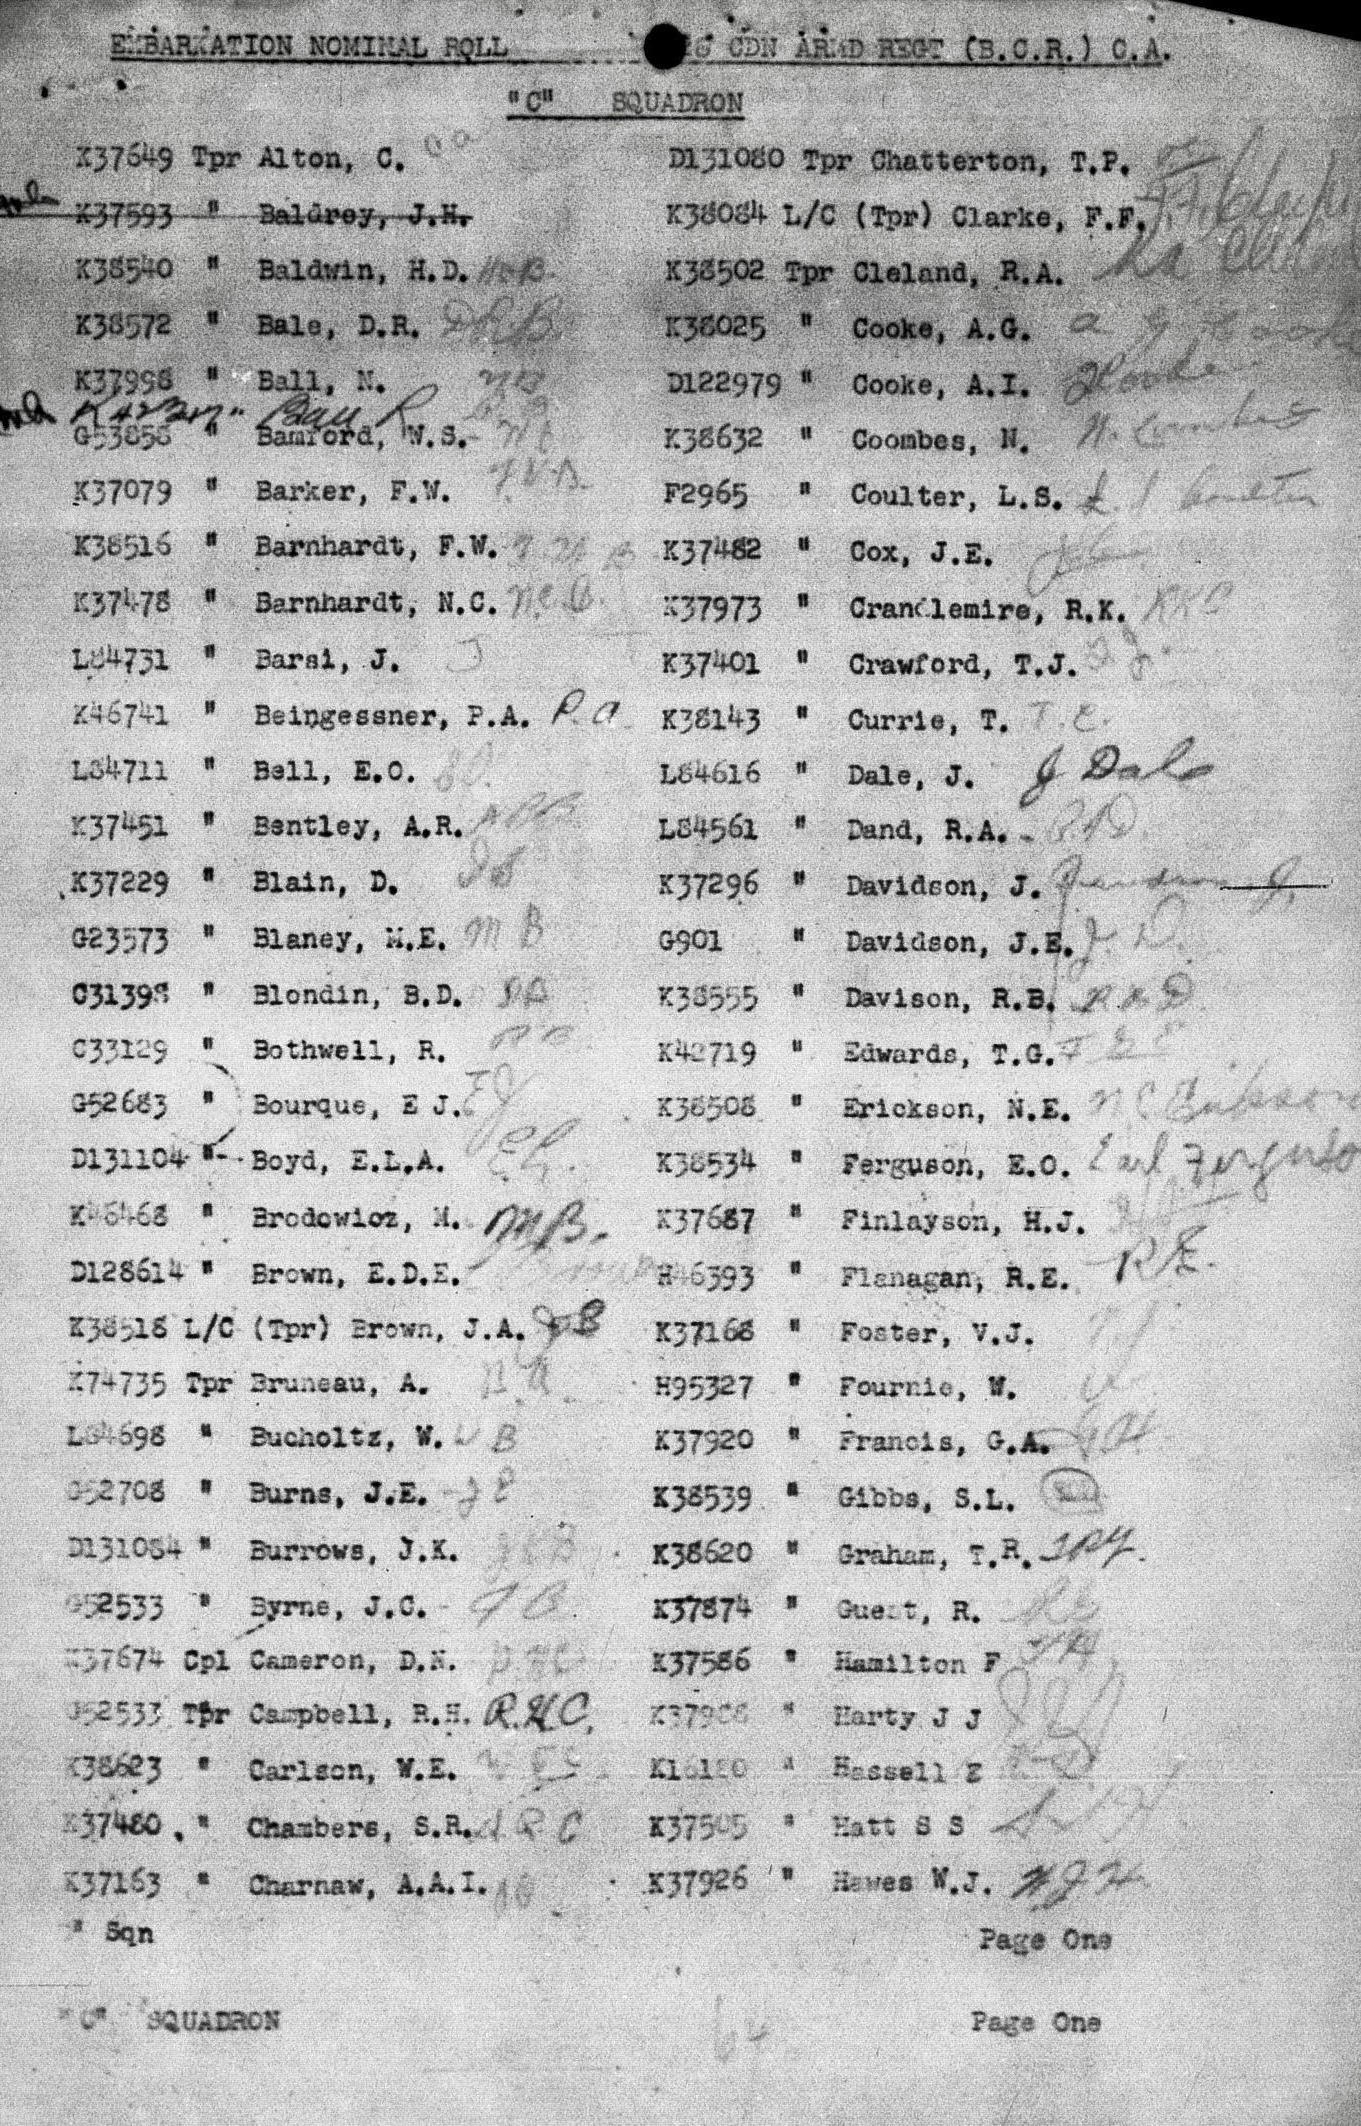 EMBARKATION NOMINAL ROLL CDN ARMD REGT (B.C.R.) C.A.
"C" SQUADRON
K37649 Tpr Alton, C.
K37593 " Baldrey, J.H.
K38540 " Baldwin, H.D. H.D.B.
K38572 " Bale, D.R. D.R.B.
K37998 " Ball, N. N B
" Ball R
G53858 " Bamford, W.S.
K37079 " Barker, F.W. F.W.B.
K38516 " Barnhardt, F.W. F. W B
K37478 " Barnhardt, N.C. N.C.B.
L84731 " Barsi, J. J
K46741 " Beingessner, P.A. P. a
L84711 " Bell, E.O. EO.
K37451 " Bentley, A.R. ARB
K37229 " Blain, D.
G23573 " Blaney, M.E. M B
C31398 " Blondin, B.D.
C33129 " Bothwell, R. R B
G52683 " Bourque, E J. E J
D131104 " Boyd, E.L.A.
K48468 " Brodowicz, M. M.B.
D128614 " Brown, E.D.E.
K38518 L/C (Tpr) Brown, J.A. JB
K74735 Tpr Bruneau, A.
L84698 " Bucholtz, W. W B
G52708 " Burns, J.E.
D131084 " Burrows, J.K. JKB
G52533 " Byrne, J.C. J B
K37674 Cpl Cameron, D.N.
G52533 Tpr Campbell, R.H. R.H.C.
K38623 " Carlson, W.E. W E C
K37480 " Chambers, S.R. S R C
K37163 " Charnaw, A.A.I.
" Sqn
"C" SQUADRON
D131080 Tpr Chatterton, T.P.
K38084 L/C (Tpr) Clarke, F.F.
K38502 Tpr Cleland, R.A. RA Cleland
K38025 " Cooke, A.G. a G Cooke
D122979 " Cooke, A.I. Cooke
K38632 " Coombes, N. N. Coombes
F2965 " Coulter, L.S. L. S Coulter
K37482 " Cox, J.E.
K37973 " Crandlemire, R.K. RKC
K37401 " Crawford, T.J. T J.
K38143 " Currie, T. T. C.
L84616 " Dale, J. J Dale
L84561 " Dand, R.A. RAD
K37296 " Davidson, J.
G901 " Davidson, J.E. J. D.
K38555 " Davison, R.B. R B D
K42719 " Edwards, T.G.
K38508 " Erickson, N.E. N E Erickson
K38534 " Ferguson, E.O. Earl Ferguson
K37687 " Finlayson, H.J.
H46393 " Flanagan, R.E. R E.
K37168 " Foster, V.J.
H95327 " Fournie, W.
K37920 " Francis, G.A.
K38539 " Gibbs, S.L.
K38620 " Graham, T.R. TRG.
K37874 " Guest, R.
K37586 " Hamilton F FH
K37988 " Harty J J
K16180 " Hassell E
K37505 " Hatt S S
K37926 " Hawes W.J. W J H
Page One
Page One
64